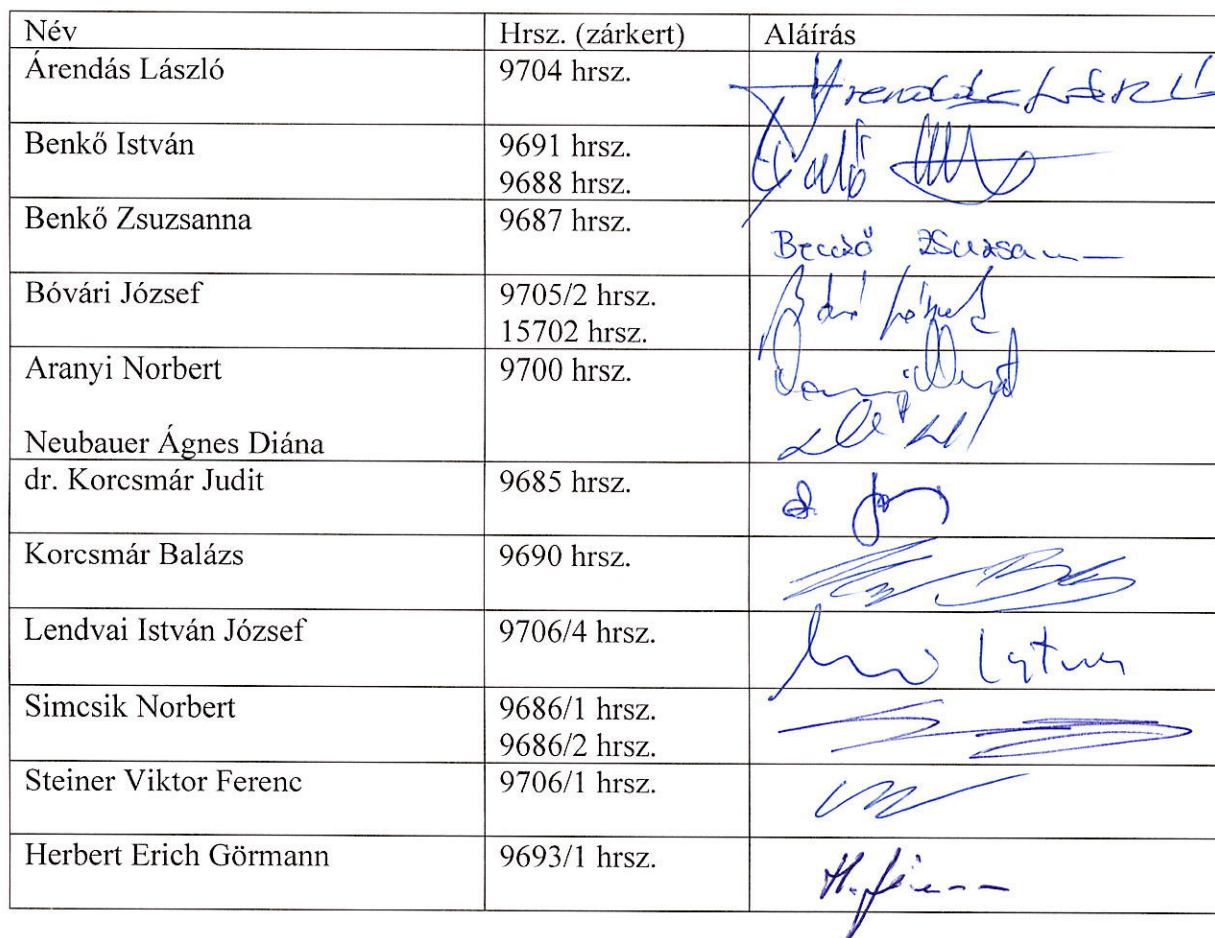 Név Hrsz. (zárkert) Aláírás
Árendás László 9704 hrsz.
Benkő István 9691 hrsz.
9688 hrsz.
Benkő Zsuzsanna 9687 hrsz.
Bóvári József 9705/2 hrsz.
15702 hrsz.
Aranyi Norbert 9700 hrsz.
Neubauer Ágnes Diána
dr. Korcsmár Judit 9685 hrsz.
Korcsmár Balázs 9690 hrsz.
Lendvai István József 9706/4 hrsz.
Simcsik Norbert 9686/1 hrsz.
9686/2 hrsz.
Steiner Viktor Ferenc 9706/1 hrsz.
Herbert Erich Görmann 9693/1 hrsz.